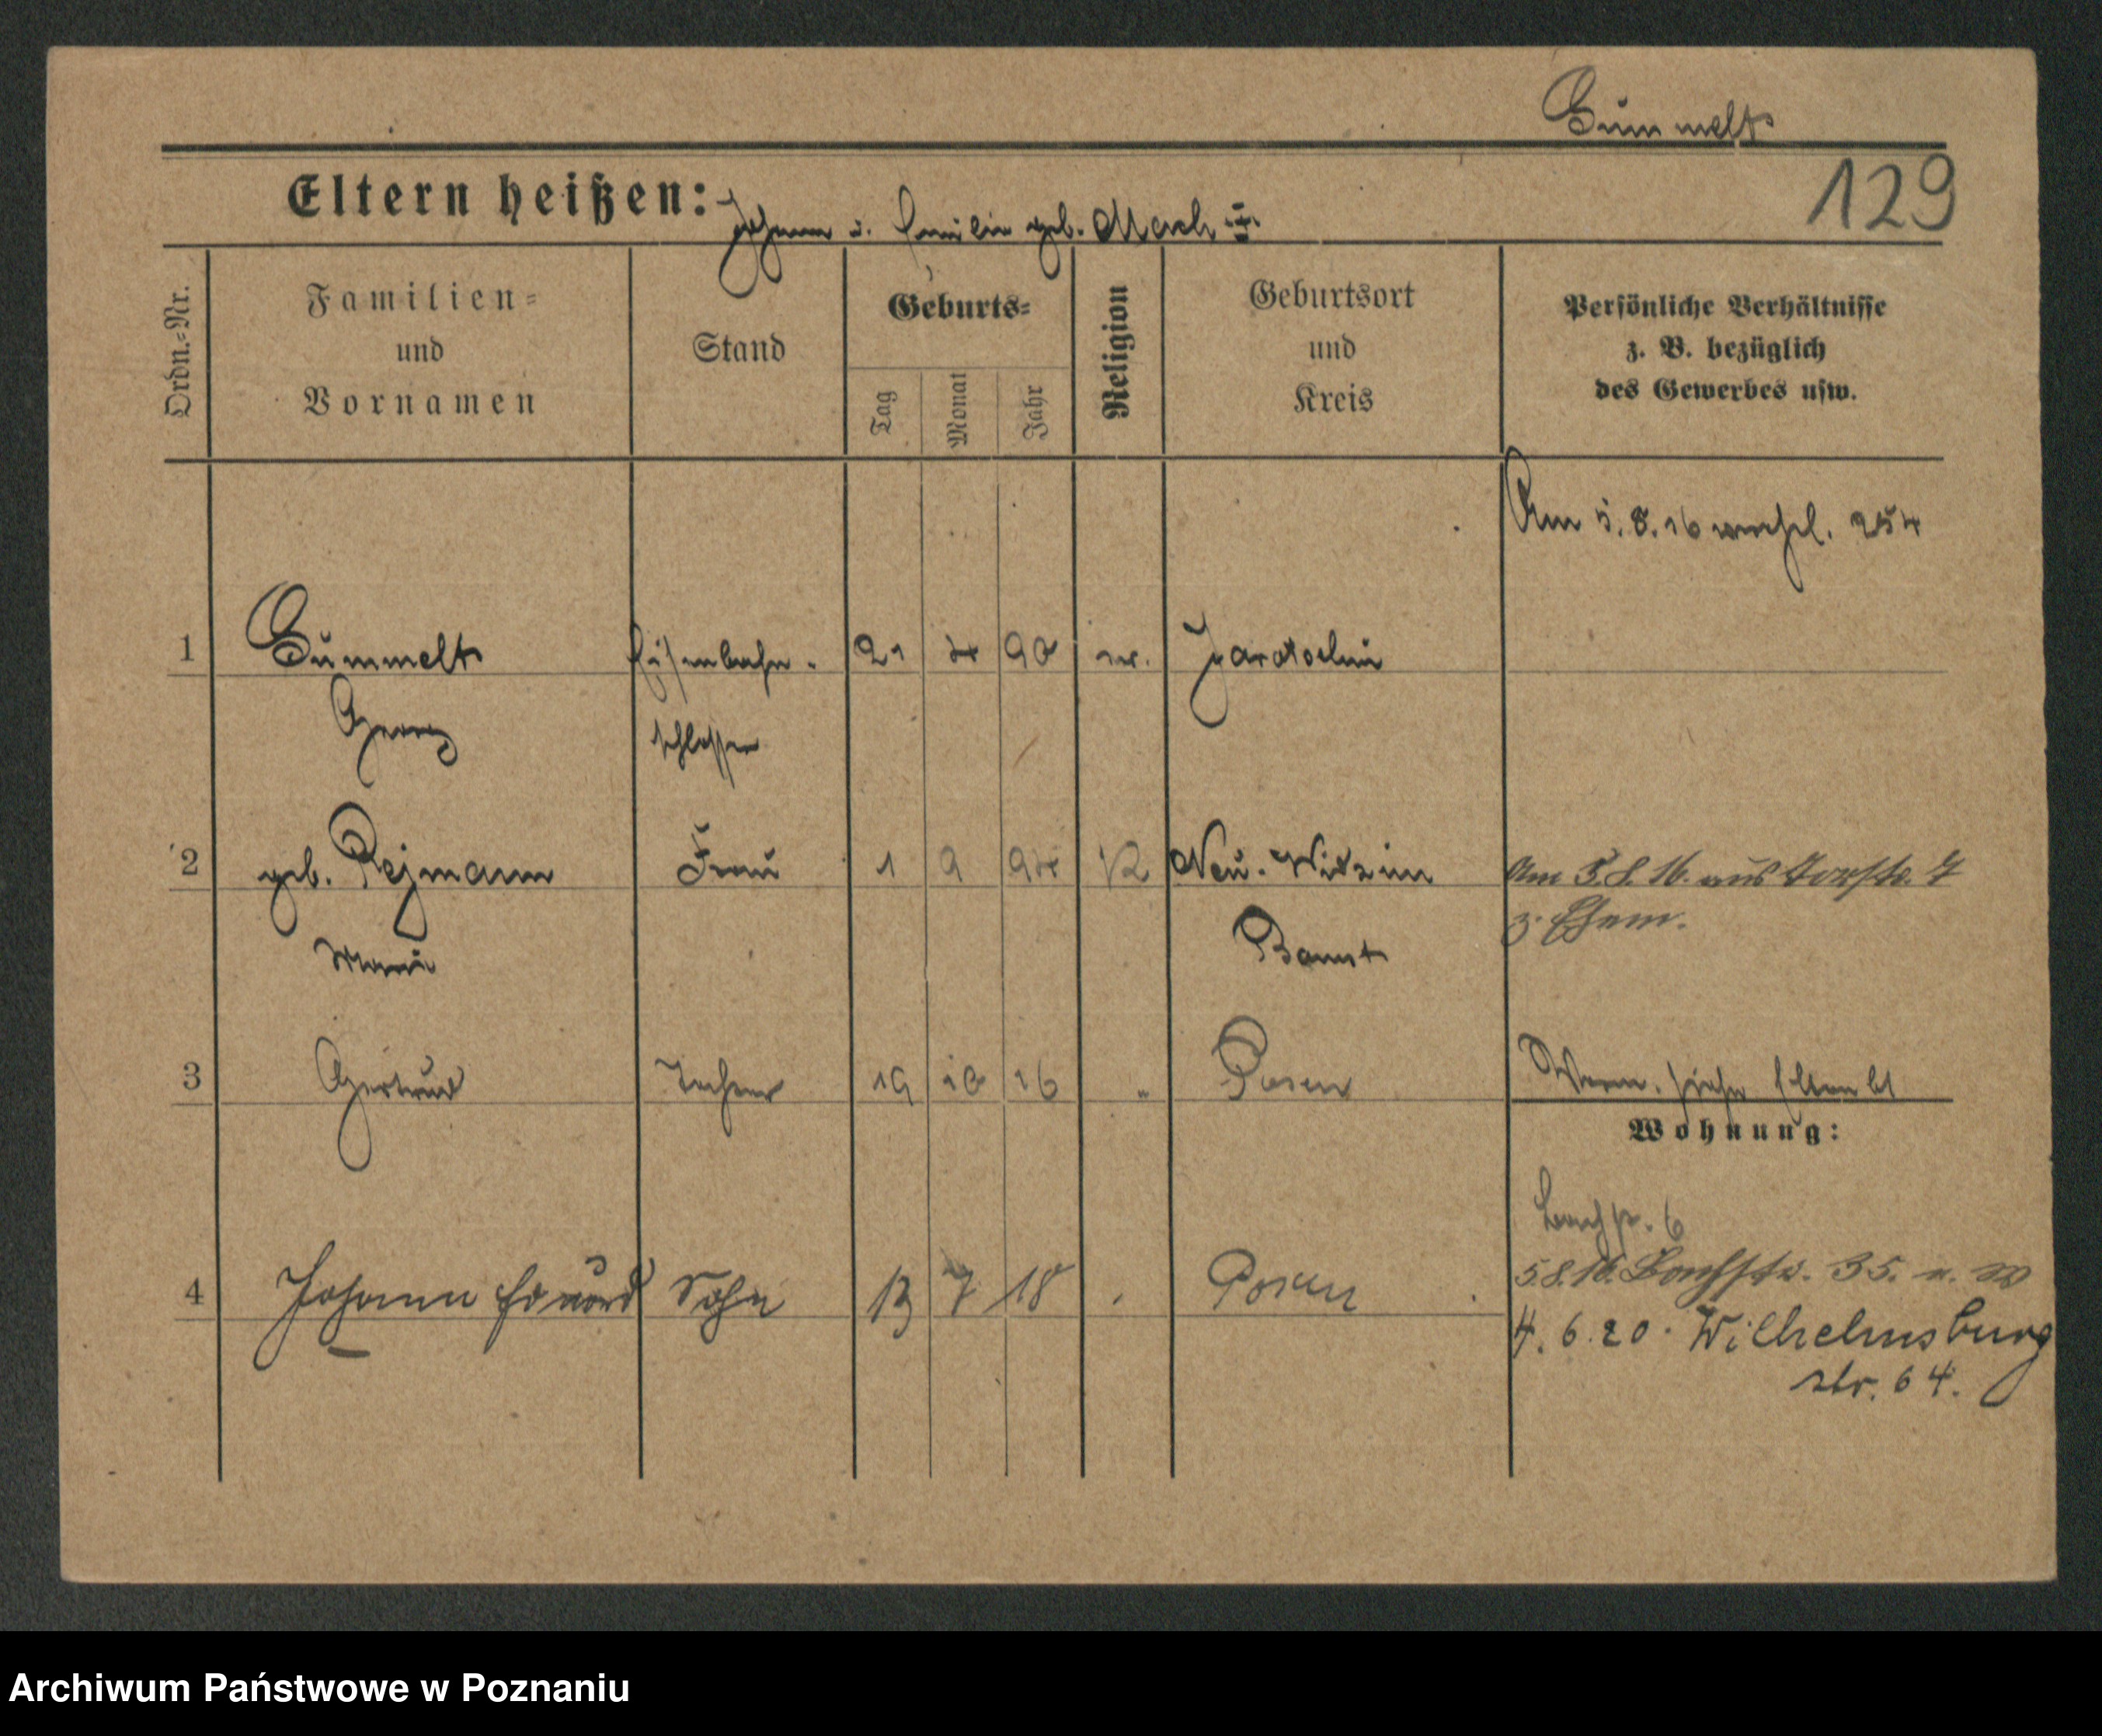 Gummelt
129
Eltern heißen: Johann u. Emilie geb. Mach
Ordn.=Nr.
Familien=
und
Vornamen
Stand
Geburts=
Tag
Monat
Jahr
Religion
Geburtsort
und
Kreis
Persönliche Verhältnisse
z. B. bezüglich
des Gewerbes usw.
Am 5.8.16 254
1 Gummelt Eisenbahn- 21 4 90 ev. Jarotschin
Georg schlosser
2 geb. Rejmann Frau 1 9 94 K Neu-Witzim
Am 5.8.16. aus Torstr. 7
z. Ehem.
Marie Bomst
3 Gertrud Tochter 19 10 16 " Posen
siehe
Wohnung:
Bachstr. 6
4 Johann Eduard Sohn 13 7 18 Posen
5.8.16. Bachstr. 35.
4.6.20. Wilhelmsburg
str. 64.
Archiwum Państwowe w Poznaniu